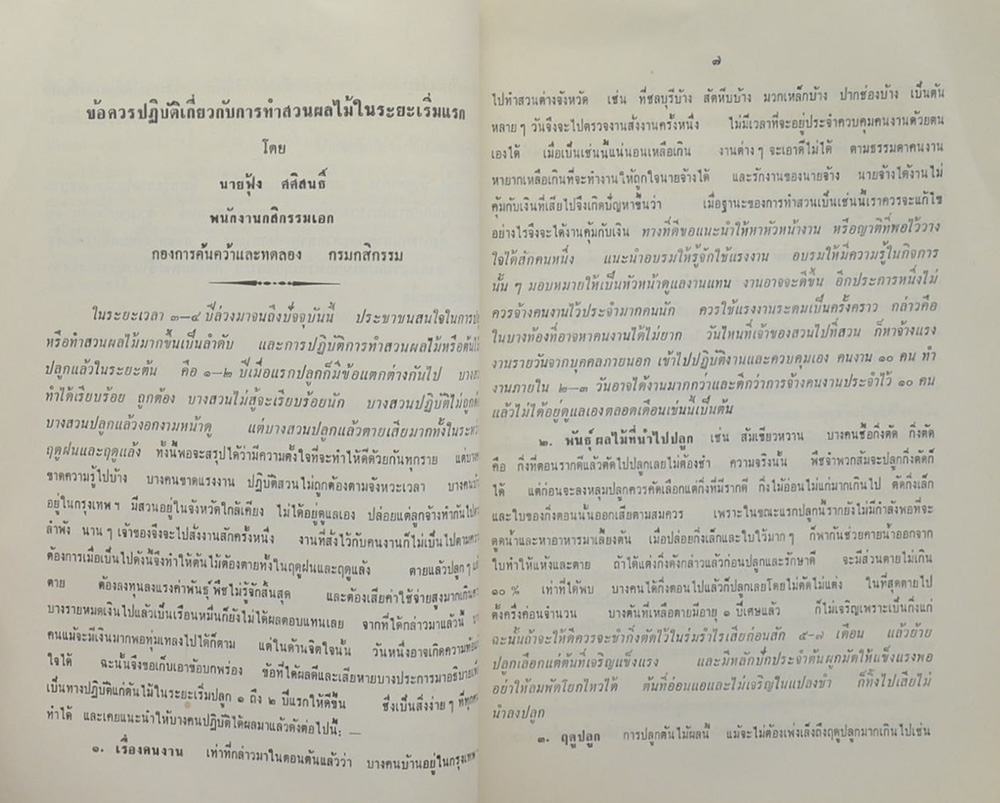 ข้อควรปฏิบัติเกี่ยวกับการทำสวนผลไม้ในระยะเริ่มแรก
โดย
นายฟุ้ง ศศิสนธิ์
พนักงานกสิกรรมเอก
กองการค้นคว้าและทดลอง กรมกสิกรรม
ในระยะเวลา ๓–๔ ปีล่วงมาจนถึงปัจจุบันนี้ ประชาชนสนใจในการ
หรือทำสวนผลไม้มากขึ้นเป็นลำดับ และการปฏิบัติการทำสวนผลไม้หรือต้นไม้
ปลูกแล้วในระยะต้น คือ ๑–๒ ปีเมื่อแรกปลูกก็มีข้อแตกต่างกันไป
ทำได้เรียบร้อย ถูกต้อง บางสวนไม่สู้จะเรียบร้อยนัก บางสวนปฏิบัติไม่ถูก
บางสวนปลูกแล้วงอกงามหน้าดู แต่บางสวนปลูกแล้วตายเสียมากทั้งใน
ฤดูฝนและฤดูแล้ง ทั้งนี้พอจะสรุปได้ว่ามีความตั้งใจที่จะทำให้ดีด้วยกันทุกราย แต่
ขาดความรู้ไปบ้าง บางคนขาดแรงงาน ปฏิบัติสวนไม่ถูกต้องตามจังหวะเวลา บางคน
อยู่ในกรุงเทพฯ มีสวนอยู่ในจังหวัดใกล้เคียง ไม่ได้อยู่ดูแลเอง ปล่อยแต่ลูกจ้างทำกันไป
ลำพัง นานๆ เจ้าของจึงจะไปสั่งงานสักครั้งหนึ่ง งานที่สั่งไว้กับคนงานก็ไม่เป็นไปตาม
ต้องการเมื่อเป็นไปดังนี้จึงทำให้ต้นไม้ต้องตายทั้งในฤดูฝนและฤดูแล้ง ตายแล้วปลูกๆ
ตาย ต้องลงทุนลงแรงค่าพันธุ์พืชไม่รู้จักสิ้นสุด และต้องเสียค่าใช้จ่ายสูงมากเกิน
บางรายหมดเงินไปแล้วเป็นเรือนหมื่นก็ยังไม่ได้ผลตอบแทนเลย จากที่ได้กล่าวมาแล้วนี้
คนแม้จะมีเงินมากพอทุ่มเทลงไปได้ก็ตาม แต่ในด้านจิตใจนั้น วันหนึ่งอาจเกิดความ
ใจได้ ฉะนั้นจึงขอเก็บเอาข้อบกพร่อง ข้อที่ได้ผลดีและเสียหายบางประการมาอธิบาย
เป็นทางปฏิบัติแก่ต้นไม้ในระยะเริ่มปลูก ๑ ถึง ๒ ปีแรกให้ดีขึ้น ซึ่งเป็นสิ่งง่ายๆ ที่ทุก
ทำได้ และเคยแนะนำให้บางคนปฏิบัติได้ผลมาแล้วดังต่อไปนี้: —
๑. เรื่องคนงาน เท่าที่กล่าวมาในตอนต้นแล้วว่า บางคนบ้านอยู่ในกรุงเทพ
๗
ไปทำสวนต่างจังหวัด เช่น ที่ชลบุรีบ้าง สัตหีบบ้าง มวกเหล็กบ้าง ปากช่องบ้าง เป็นต้น
หลายๆ วันจึงจะไปตรวจงานสั่งงานครั้งหนึ่ง ไม่มีเวลาที่จะอยู่ประจำควบคุมคนงานด้วยตน
เองได้ เมื่อเป็นเช่นนี้แน่นอนเหลือเกิน งานต่างๆ จะเอาดีไม่ได้ ตามธรรมดาคนงาน
หายากเหลือเกินที่จะทำงานให้ถูกใจนายจ้างได้ และรักงานของนายจ้าง นายจ้างได้งานไม่
คุ้มกับเงินที่เสียไปจึงเกิดปัญหาขึ้นว่า เมื่อฐานะของการทำสวนเป็นเช่นนี้เราควรจะแก้ไข
อย่างไรจึงจะได้งานคุ้มกับเงิน ทางที่ดีขอแนะนำให้หาหัวหน้างาน หรือญาติที่พอไว้วาง
ใจได้สักคนหนึ่ง แนะนำอบรมให้รู้จักใช้แรงงาน อบรมให้มีความรู้ในกิจการ
นั้นๆ มอบหมายให้เป็นหัวหน้าดูแลงานแทน งานอาจจะดีขึ้น อีกประการหนึ่งไม่
ควรจ้างคนงานไว้ประจำมากคนนัก ควรใช้แรงงานระดมเป็นครั้งคราว กล่าวคือ
ในบางท้องที่อาจหาคนงานได้ไม่ยาก วันไหนที่เจ้าของสวนไปที่สวน ก็หาจ้างแรง
งานรายวันจากบุคคลภายนอก เข้าไปปฏิบัติงานและควบคุมเอง คนงาน ๑๐ คน ทำ
งานภายใน ๒–๓ วันอาจได้งานมากกว่าและดีกว่าการจ้างคนงานประจำไว้ ๑๐ คน
แล้วไม่ได้อยู่ดูแลเองตลอดเดือนเช่นนี้เป็นต้น
๒. พันธุ์ผลไม้ที่นำไปปลูก เช่น ส้มเขียวหวาน บางคนซื้อกิ่งตัด กิ่งตัด
คือ กิ่งที่ตอนรากดีแล้วตัดไปปลูกเลยไม่ต้องชำ ความจริงนั้น พืชจำพวกส้มจะปลูกกิ่งตัดก็
ได้ แต่ก่อนจะลงหลุมปลูกควรคัดเลือกแต่กิ่งที่มีรากดี กิ่งไม่อ่อนไม่แก่มากเกินไป ตัดกิ่งเล็ก
และใบของกิ่งตอนนั้นออกเสียตามสมควร เพราะในขณะแรกปลูกนี้รากยังไม่มีกำลังพอที่จะ
ดูดน้ำและหาอาหารมาเลี้ยงต้น เมื่อปล่อยกิ่งเล็กและใบไว้มากๆ ก็พากันช่วยคายน้ำออกจาก
ใบทำให้แห้งและตาย ถ้าได้แต่งกิ่งดังกล่าวแล้วก่อนปลูกและรักษาดี จะมีส่วนตายไม่เกิน
๑๐ % เท่าที่ได้พบ บางคนได้กิ่งตอนไปแล้วก็ปลูกเลยโดยไม่ตัดไม่แต่ง ในที่สุดตายไป
ตั้งครึ่งค่อนจำนวน บางต้นที่เหลือตายมีอายุ ๑ ปีเศษแล้ว ก็ไม่เจริญเพราะเป็นกิ่งแก่
ฉะนั้นถ้าจะให้ดีควรจะชำกิ่งตัดไว้ในร่มรำไรเสียก่อนสัก ๕–๗ เดือน แล้วย้าย
ปลูกเลือกแต่ต้นที่เจริญแข็งแรง และมีหลักปักประจำต้นผูกมัดให้แข็งแรงพอ
อย่าให้ลมพัดโยกไหวได้ ต้นที่อ่อนแอและไม่เจริญในแปลงชำ ก็ทิ้งไปเสียไม่
นำลงปลูก
๓. ฤดูปลูก การปลูกต้นไม้ผลนี้ แม้จะไม่ต้องเพ่งเล็งถึงฤดูปลูกมากเกินไปเช่น